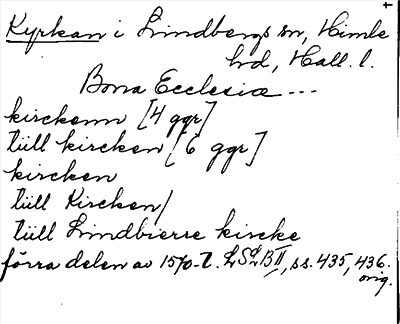 Kyrkan i Lindbergs sn, Himle
hd, Hall. l.
Bona Ecclesiæ ---
kirckenn [4 ggr]
tüll kircken [6 ggr]
kircken
tüll Kircken/
tüll Lindbierre kircke
förra delen av 1570-t. LSLB II, ss. 435, 436.
orig.